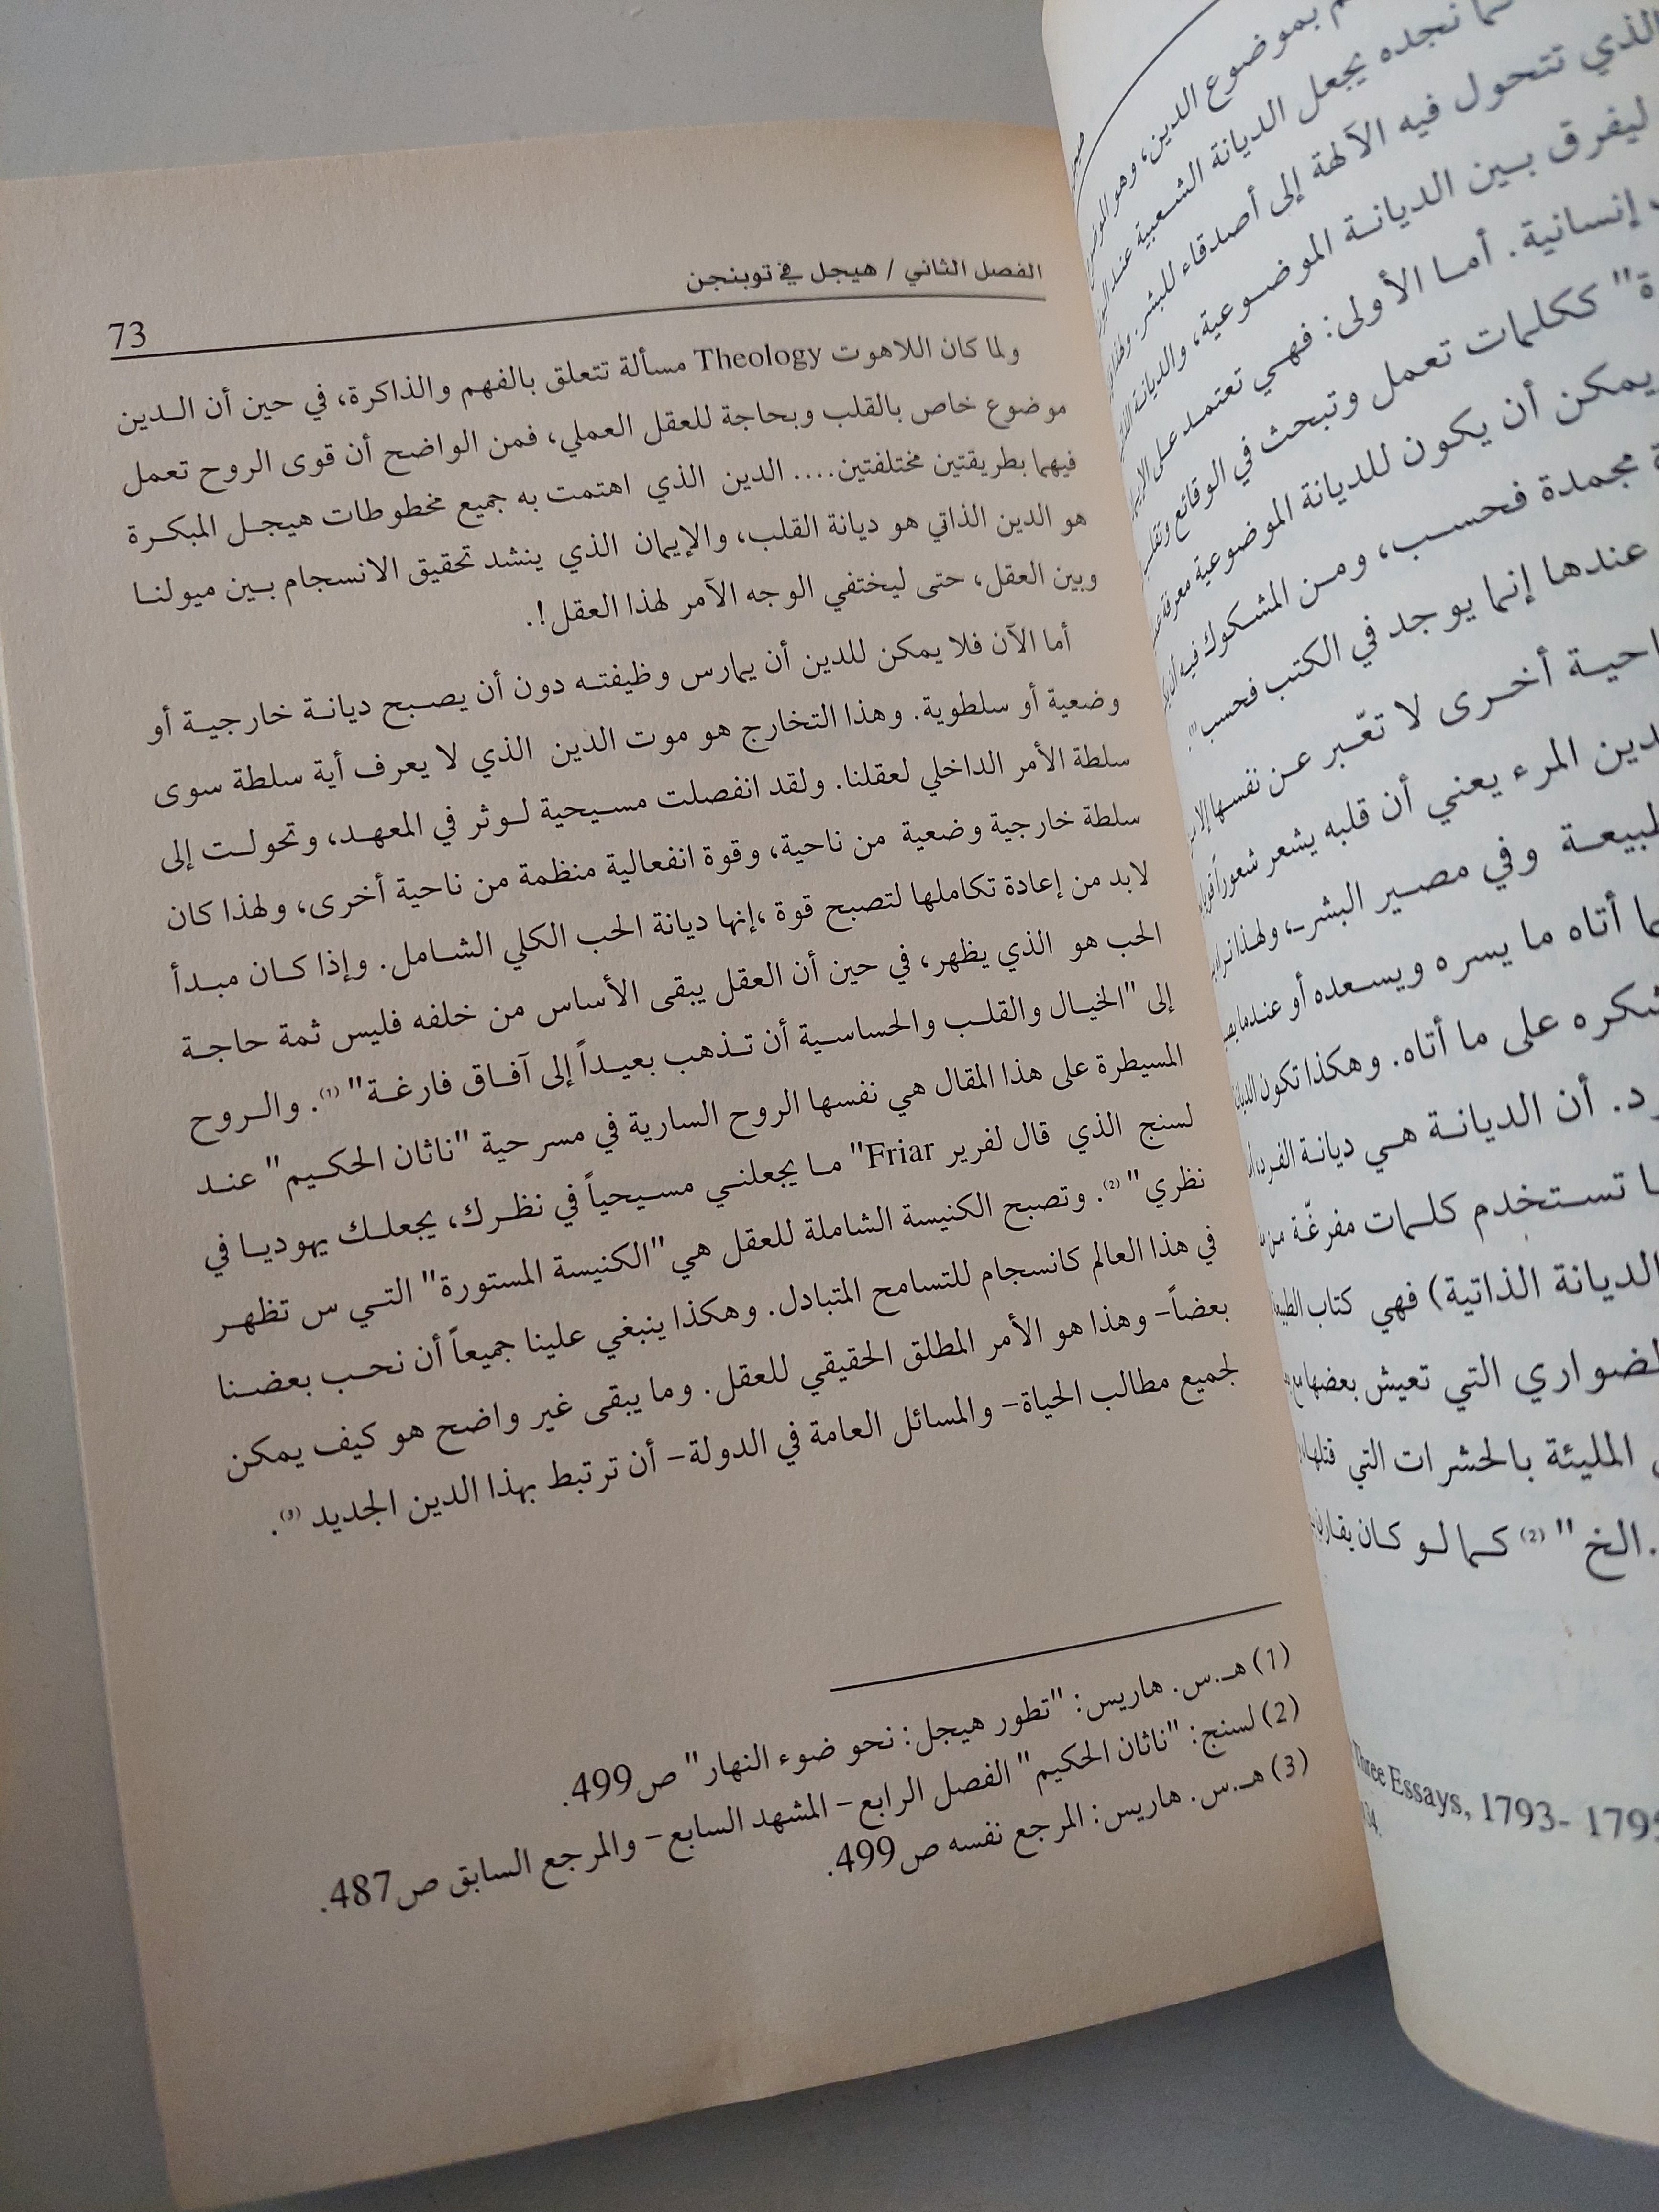 الفصل الثاني / هيجل في توبنجن
73
ولما كان اللاهوت Theology مسألة تتعلق بالفهم والذاكرة، في حين أن الـدين
موضوع خاص بالقلب وبحاجة للعقل العملي، فمن الواضح أن قوى الروح تعمل
فيهما بطريقتين مختلفتين.... الدين الذي اهتمت به جميع مخطوطات هيجـل المبكـرة
هو الدين الذاتي هو ديانة القلب، والإيمان الذي ينشد تحقيق الانسجام بـين ميولنـا
وبين العقل، حتى ليختفي الوجه الآمر لهذا العقل!.
أما الآن فلا يمكن للدين أن يمارس وظيفتـه دون أن يصـبح ديانـة خارجيـة أو
وضعية أو سلطوية. وهذا التخارج هو موت الدين الذي لا يعرف أية سلطة سوى
سلطة الأمر الداخلي لعقلنا. ولقد انفصلت مسـيحية لـوثر في المعهـد، وتحولـت إلى
سلطة خارجية وضعية من ناحية، وقوة انفعالية منظمة من ناحية أخرى، ولهذا كان
لابد من إعادة تكاملها لتصبح قوة ،إنها ديانة الحب الكلي الشـامل. وإذا كـان مبـدأ
الحب هو الذي يظهر، في حين أن العقل يبقى الأساس من خلفه فليس ثمة حاجـة
إلى "الخيـال والقلـب والحساسـية أن تـذهب بعيـداً إلى آفـاق فارغـة" (1). والـروح
المسيطرة على هذا المقال هي نفسها الروح السارية في مسرحية "ناثان الحكـيم" عنـد
لسنج الذي قال لفرير Friar" مـا يجعلنـي مسـيحياً في نظـرك، يجعلـك يهوديـا في
نظري" (2). وتصبح الكنيسة الشاملة للعقل هي "الكنيسة المستورة" التـي س تظهـر
في هذا العالم كانسجام للتسامح المتبادل. وهكذا ينبغي علينا جميعاً أن نحـب بعضـنا
بعضاً- وهذا هو الأمر المطلق الحقيقي للعقل. وما يبقى غير واضح هو كيف يمكن
لجميع مطالب الحياة- والمسائل العامة في الدولة- أن ترتبط بهذا الدين الجديد (3).
(1) هـ.س. هاريس: "تطور هيجل: نحو ضوء النهار" ص499.
(2) لسنج: "ناثان الحكيم" الفصل الرابع- المشهد السابع- والمرجع السابق ص487.
(3) هـ.س. هاريس: المرجع نفسه ص499.
بموضوع الدين، وهو
نجده يجعل الديانة الشـعبية عنـد
الذي تتحول فيه الآلهة إلى أصدقاء للبشر.
ليفرق بـين الديانـة الموضـوعية، والديانـة
إنسانية. أمـا الأولى: فهـي تعتمـد عـلى
ككلمات تعمل وتبحث في الوقائع
يمكن أن يكون للديانة الموضوعية معرفة
مجمدة فحسـب، ومـن المشـكوك فيـه أن
عندها إنما يوجد في الكتب فحسب" (1)
أخـرى لا تعّـبر عـن نفسـها إلا
المرء يعني أن قلبه يشعر شعوراً
وفي مصـير البشرـ، ولهـذا
أتاه ما يسره ويسـعده أو عنـدما
على ما أتاه. وهكذا تكون
أن الديانـة هـي ديانـة الفـرد،
تسـتخدم كلـمات مفرغّـة مـن
الديانة الذاتية) فهي كتاب
التي تعيش بعضها مع
المليئة بالحشرات التي قتلها
الخ" (2) كـما لـو كـان
Three Essays, 1793- 1795